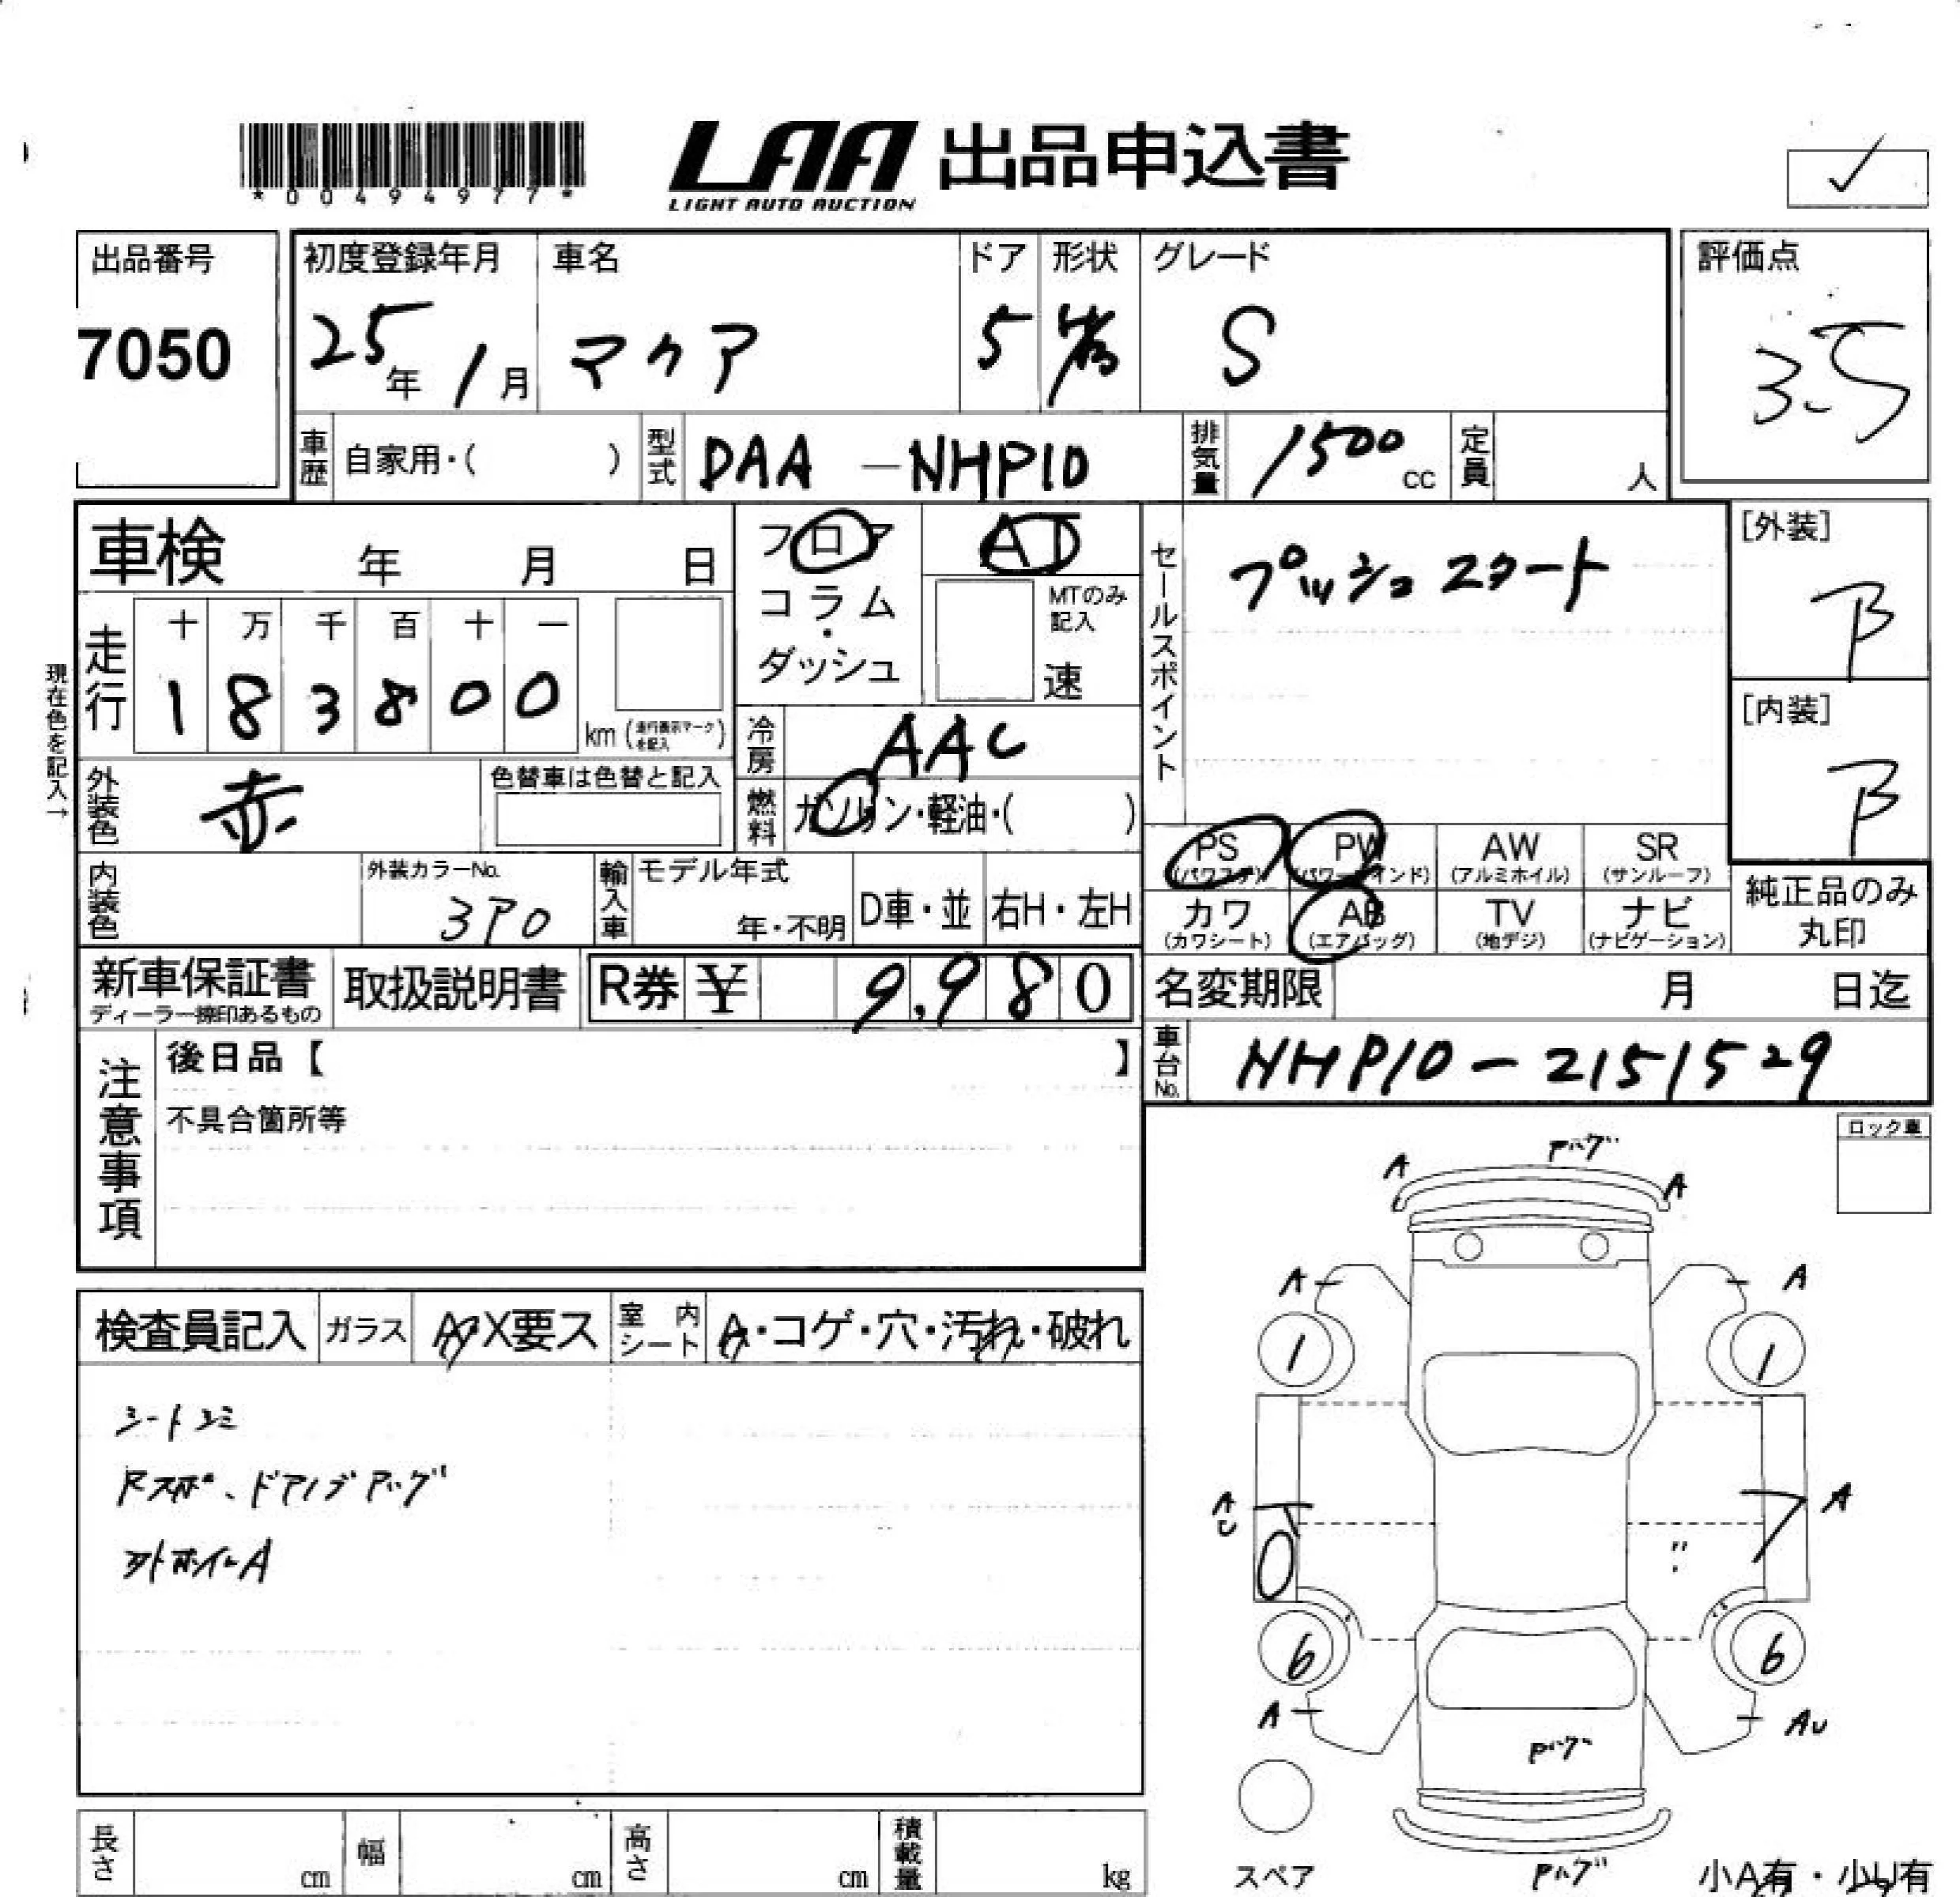 *0049497 7*
LAA 出品申込書
LIGHT AUTO AUCTION
出品番号
7050
初度登録年月
25年 1月
車名
アクア
ドア
5
形状
グレード
S
評価点
3.5
車歴 自家用・( )
型式 DAA-NHP10
排気量 1500 cc
定員 人
車検 年 月 日
フロア
コラム
・
ダッシュ
AT
MTのみ記入
速
セールスポイント
プッシュスタート
[外装]
B
[内装]
B
現在色を記入→
走行
十 万 千 百 十 一
1 8 3 8 0 0
km (走行表示マークを記入)
冷房 AAC
外装色 赤
色替車は色替と記入
燃料 ガソリン・軽油・( )
PS (パワステ)
PW (パワーウインド)
AW (アルミホイル)
SR (サンルーフ)
カワ (カワシート)
AB (エアバッグ)
TV (地デジ)
ナビ (ナビゲーション)
純正品のみ丸印
内装色
外装カラーNo.
3P0
輸入車
モデル年式
年・不明
D車・並
右H・左H
新車保証書
ディーラー捺印あるもの
取扱説明書
R券 ¥ 9,980
名変期限 月 日迄
車台No. NHP10-2151529
注意事項
後日品【 】
不具合箇所等
ロック車
検査員記入
ガラス A・X要ス
室内シート A・コゲ・穴・汚れ・破れ
シートシミ
ドアノブ
A
A
A
A
A
1
1
A
U
A
6
6
A
AU
スペア
小A有・小U有
長さ cm
幅 cm
高さ cm
積載量 kg